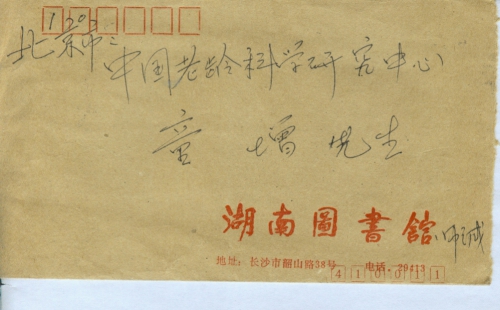 北京市
中国老龄科学研究中心
童增先生
湖南圖書館
地址:长沙市韶山路38号 电话:29413
410011